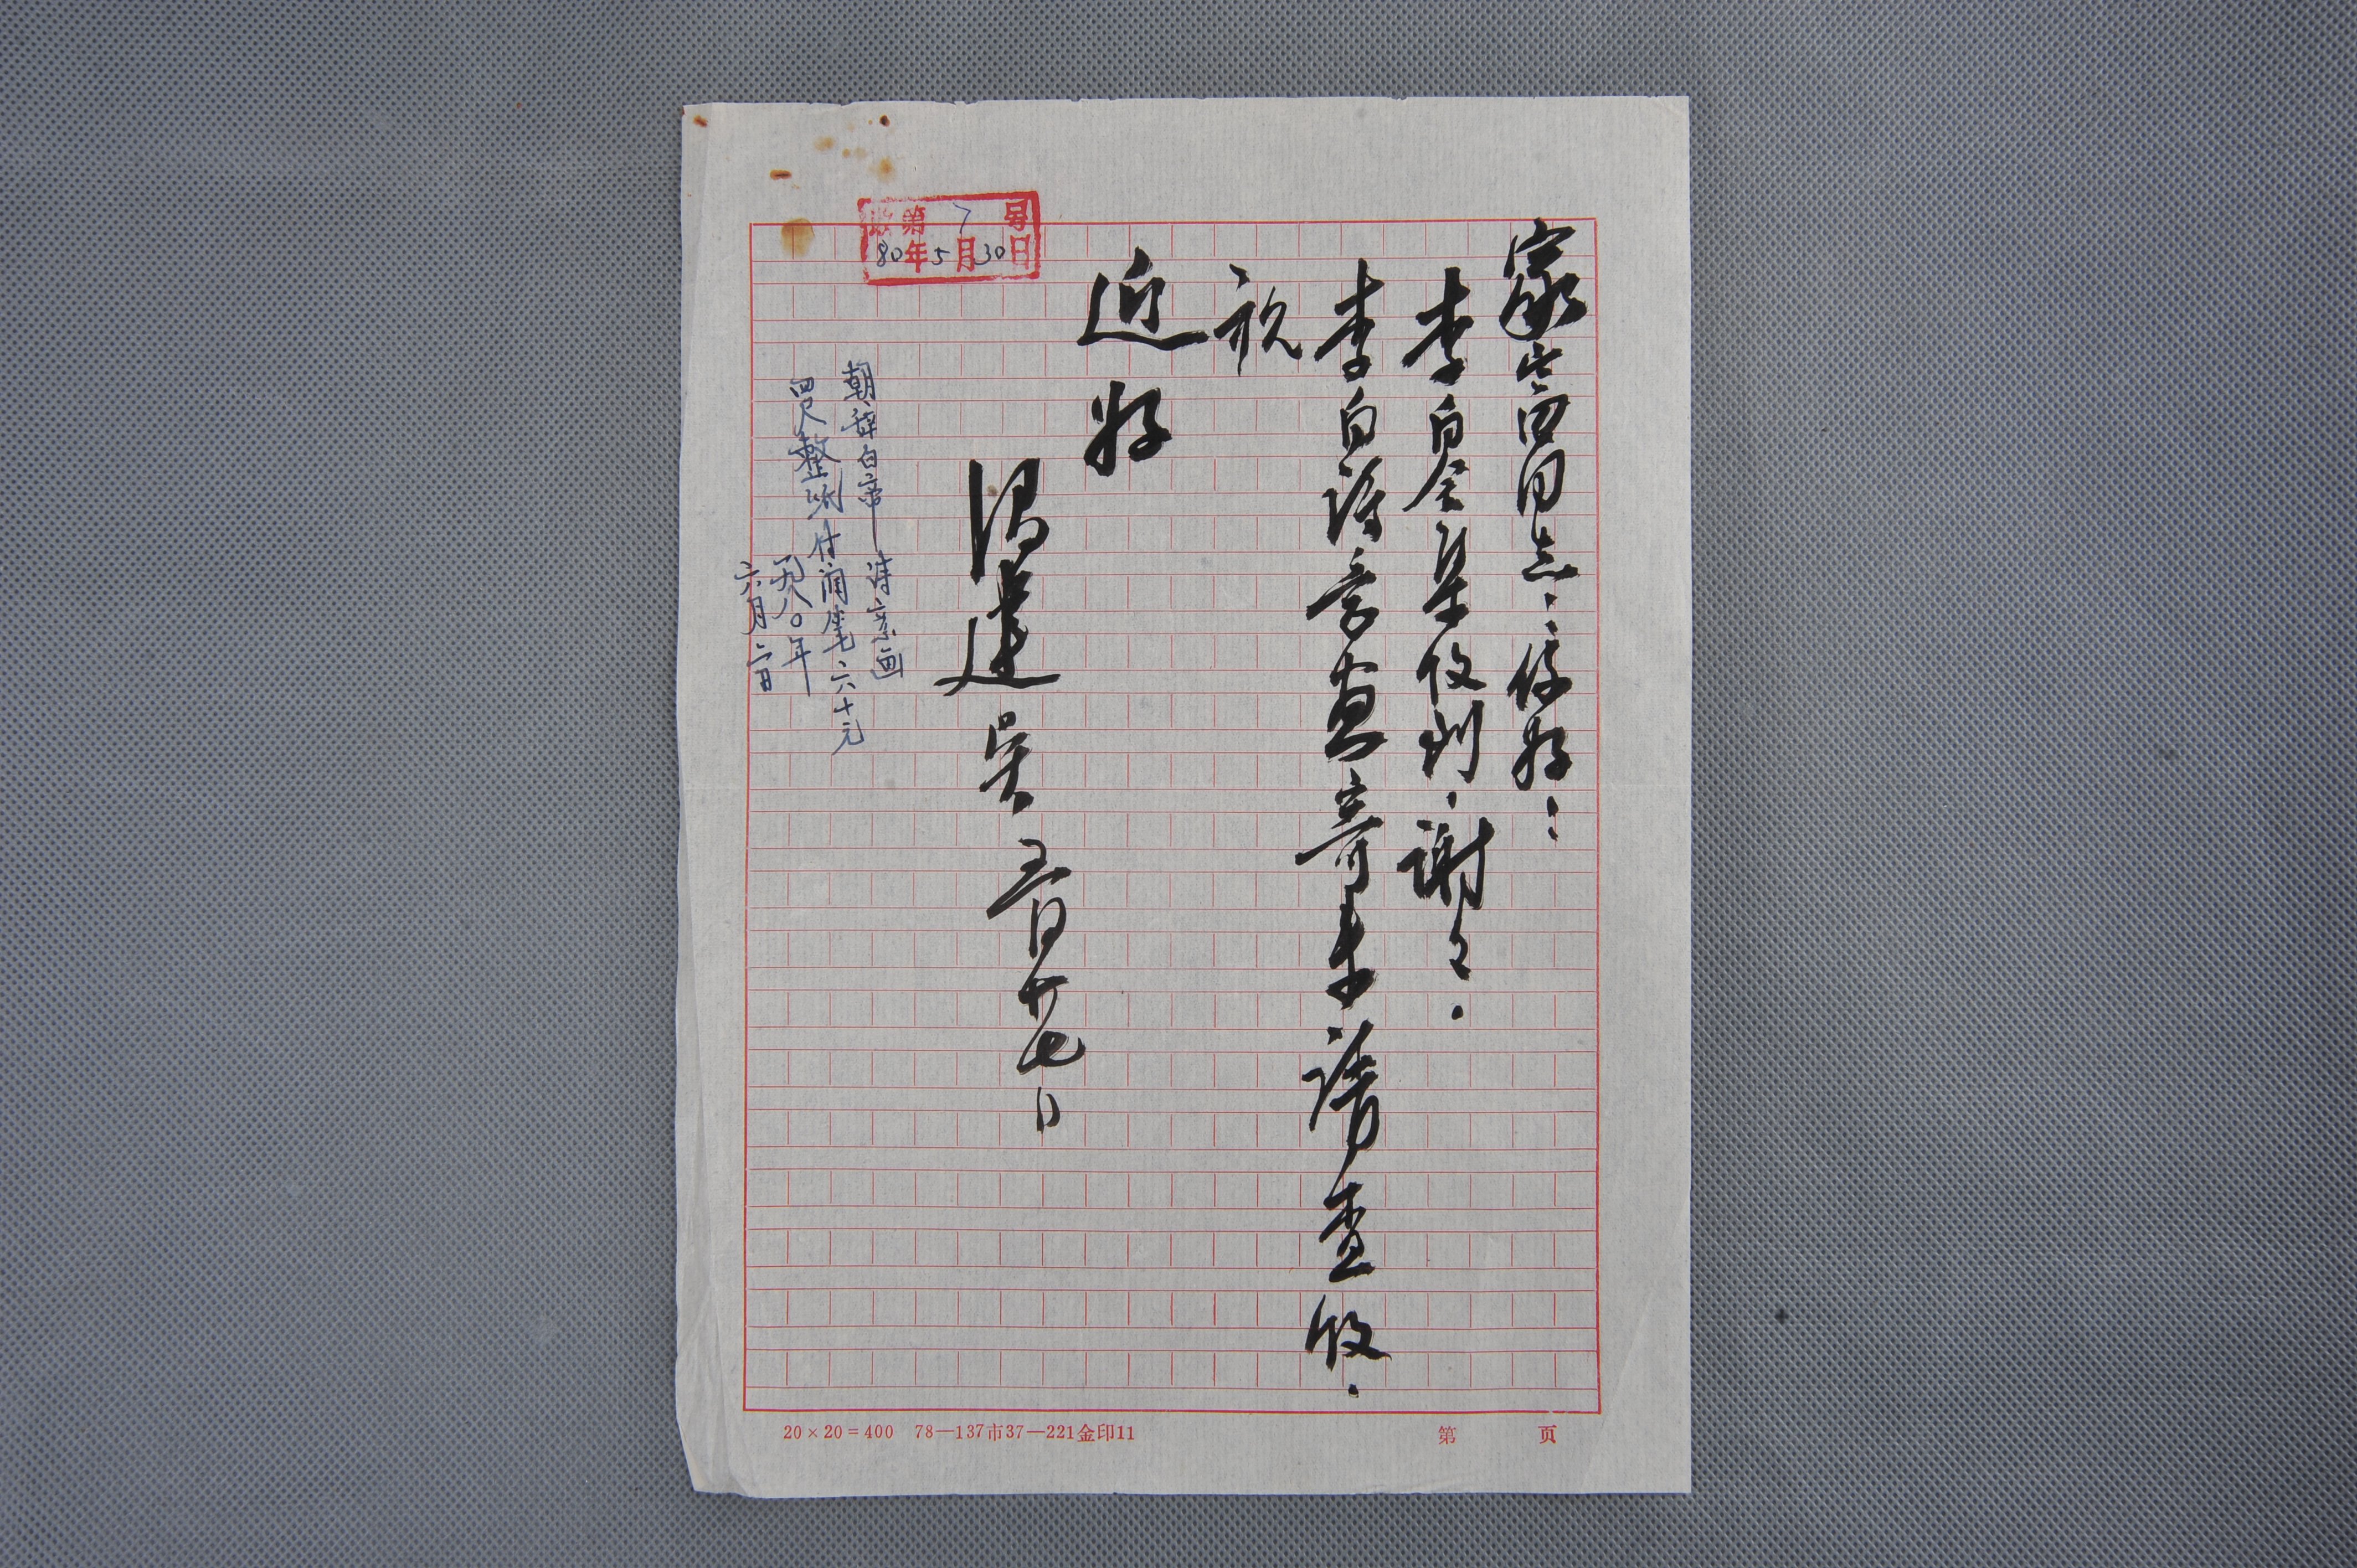 家富同志：你好！
李白全集收到，谢々。
李白诗意画寄来请查收。
祝
近好
吴 五月廿七日
收第7号
80年5月30日
朝辞白帝 诗意画
四尺整张付润笔六十元
一九八〇年
六月二日
20×20=400 78—137市37—221金印11
第 页